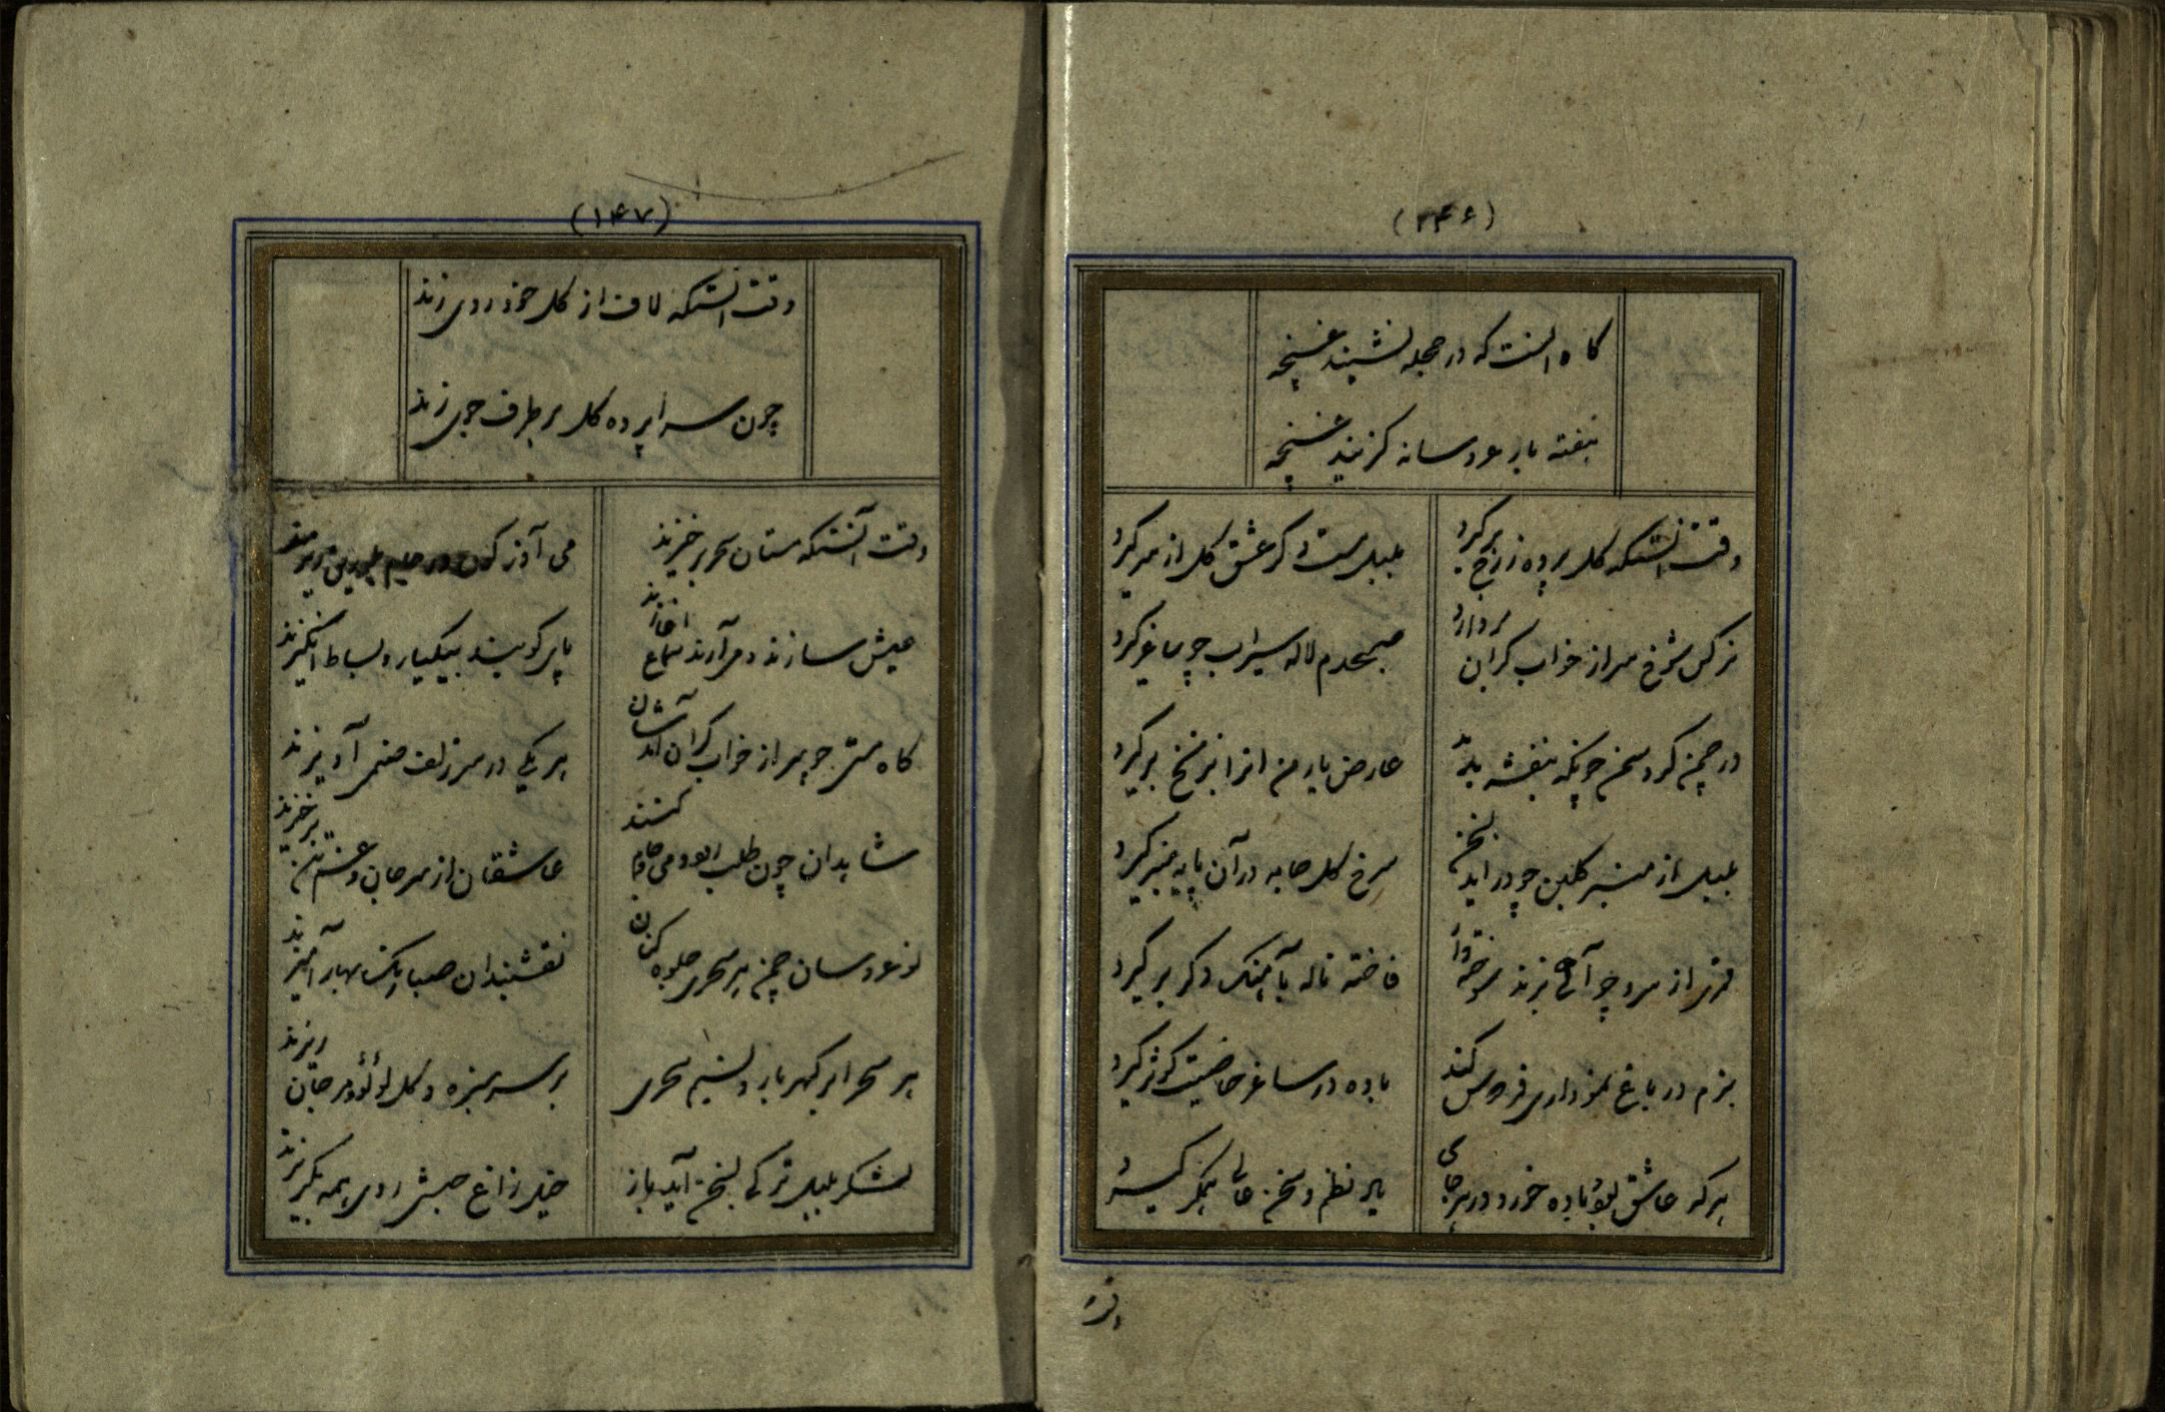 (۲۴۶)
گاه آنست که در حجله نشیند غنچه
هفته بار عروسانه گزیند غنچه
وقت آنستکه گل پرده ز رخ برگیرد
بلبل مست دگر عشق گل از سر گیرد
نرگس شوخ سر از خواب گران بردارد
صبحدم لاله سیراب چو ساغر گیرد
در چمن گرد سمن چونکه بنفشه بدمد
عارض یار من انرا بر نخ برگیرد
بلبل از منبر گلبن چو دراید بسخن
سرخ گل جا به در آن پایه منبر گیرد
قمری از سرو چو آهی بزند سوخته وار
فاخته ناله بآهنگ دگر برگیرد
بزم در باغ نموداری فردوس کند
باده در ساغر خاصیت کوثر گیرد
هر که عاشق بود باده خورد در هر جای
یار نظم و سخن عالی
(۱۴۷)
وقت آنستکه لاف از گل خودروی زند
چون سراپرده گل بر طرف جوی زند
وقت آنستکه مستان سحر برخیزند
می آذرگون در جام
عیش سازند و برآرند سماع اغازند
پای کوبند بیکبار و بساط انگیزند
گاه مستی چو سر از خواب گران آیدشان
هر یکی در سر زلف صنمی آویزند
شاهدان چون طلب می کنند
عاشقان از سر جان و غم تن برخیزند
نوعروسان چمن هر سحری جلوه کنان
نقشبندان صبا رنگ بهار آمیزند
هر سحر ابر گهربار و نسیم سحری
بر سر سبزه و گل لؤلؤ و مرجان ریزند
لشکر بلبل ترکی بسخن آید باز
خیل زاغ حبشی روی همه بگریزند